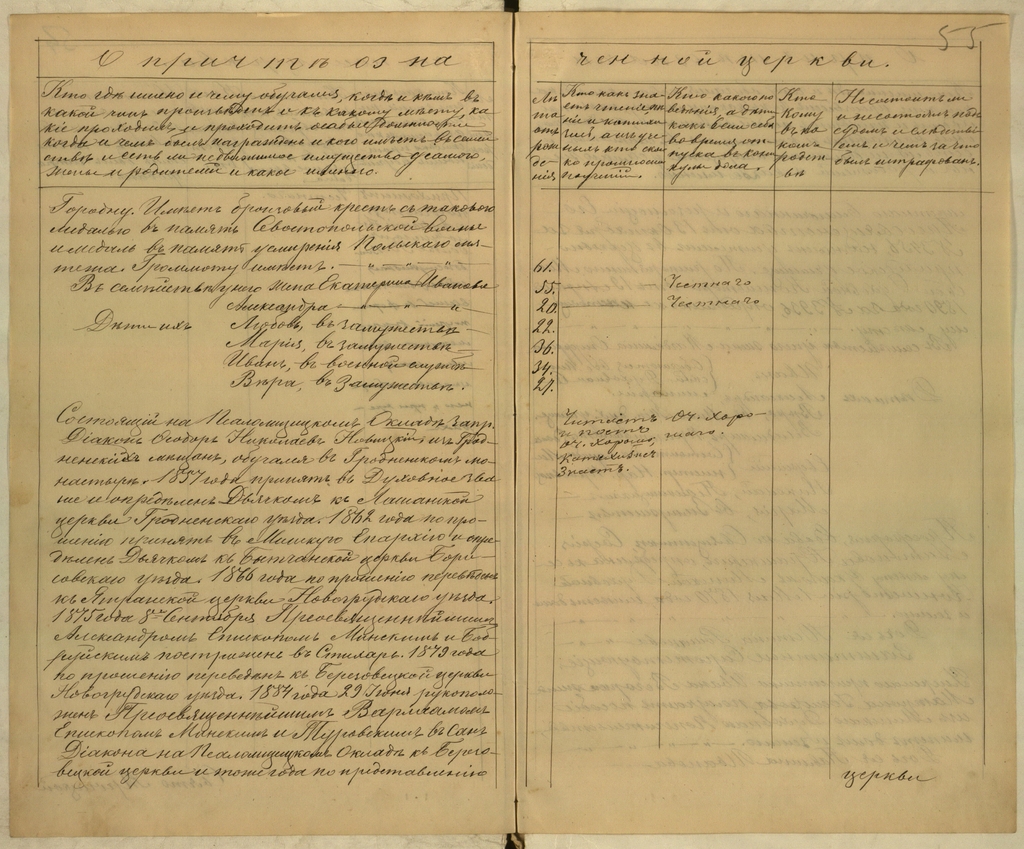 55
О причтѣ озна
ченной церкви.
Кто гдѣ именно и чему обучался, когда и кѣмъ въ
какой чинъ произведенъ и къ какому мѣсту, ка-
кіе проходилъ и проходитъ особыя должности,
когда и чемъ былъ награжденъ и кого имѣетъ въ семей
ствѣ и есть ли недвижимое имущество у самого,
жены и родителей и какое именно.
Лѣ
та
отъ
рож
де-
нія
Кто какъ зна-
етъ чтеніе пѣ
ніе и катихи-
зисъ, а изъ уче
ныхъ кто ско
ко произносилъ
поученій.
Кто какого по
веденія, а дѣти
какъ вели себя
во время от-
пуска въ кани
кулы дома.
Кто
кому
въ ка
комъ
родст
вѣ
Не состоитъ ли
и не состоялъ подъ
судомъ и слѣдстві
емъ и чемъ за что
былъ штрафованъ.
Городну. Имѣетъ бронзовый крестъ съ таковою
медалью въ память Севостопольской войны
и медаль въ память усмиренія Польскаго мя-
тежа. Граммоту имѣетъ. — „ — „ — „
61.
Въ семействѣ у него жена Екатерина Иванова
55. — Честнаго
Александра — „ — „
20. — Честнаго
Дѣти ихъ Любовь, въ замужествѣ
22.
Марія, въ замужествѣ
36.
Иванъ, въ военной службѣ
34.
Вѣра, въ замужествѣ.
27.
Состоящій на Псаломщицкомъ Окладѣ Запр.
Діаконъ Ѳеодоръ Новицкій изъ Грод-
ненскихъ мѣщанъ, обучался въ Гродненскомъ мо-
настырѣ. 1857 года принятъ въ Духовное зва
ніе и опредѣленъ Дьячкомъ къ
церкви Гродненскаго уѣзда. 1862 года по про-
шенію принятъ въ Минскую Епархію и опре
дѣленъ Дьячкомъ къ Бытчанской церкви Бори
совскаго уѣзда. 1866 года по прошенію переведенъ
къ Ятранской церкви Новогрудскаго уѣзда.
1875 года 8го Сентября Преосвященнѣйшимъ
Александромъ Епископомъ Минскимъ и Боб
руйскимъ постриженъ въ Стихарь. 1879 года
по прошенію переведенъ къ Березовецкой церкви
Новогрудскаго уѣзда. 1884 года 29 Іюня рукополо
женъ Преосвященнѣйшимъ Варлаамомъ
Епископомъ Минскимъ и Туровскимъ въ Санъ
Діакона на Псаломщицкомъ Окладѣ къ Березо-
вецкой церкви и того же года по представленію
Читаетъ
и поетъ
оч. хорошо,
Катихизисъ
знаетъ.
Оч. хоро-
шаго.
церкви